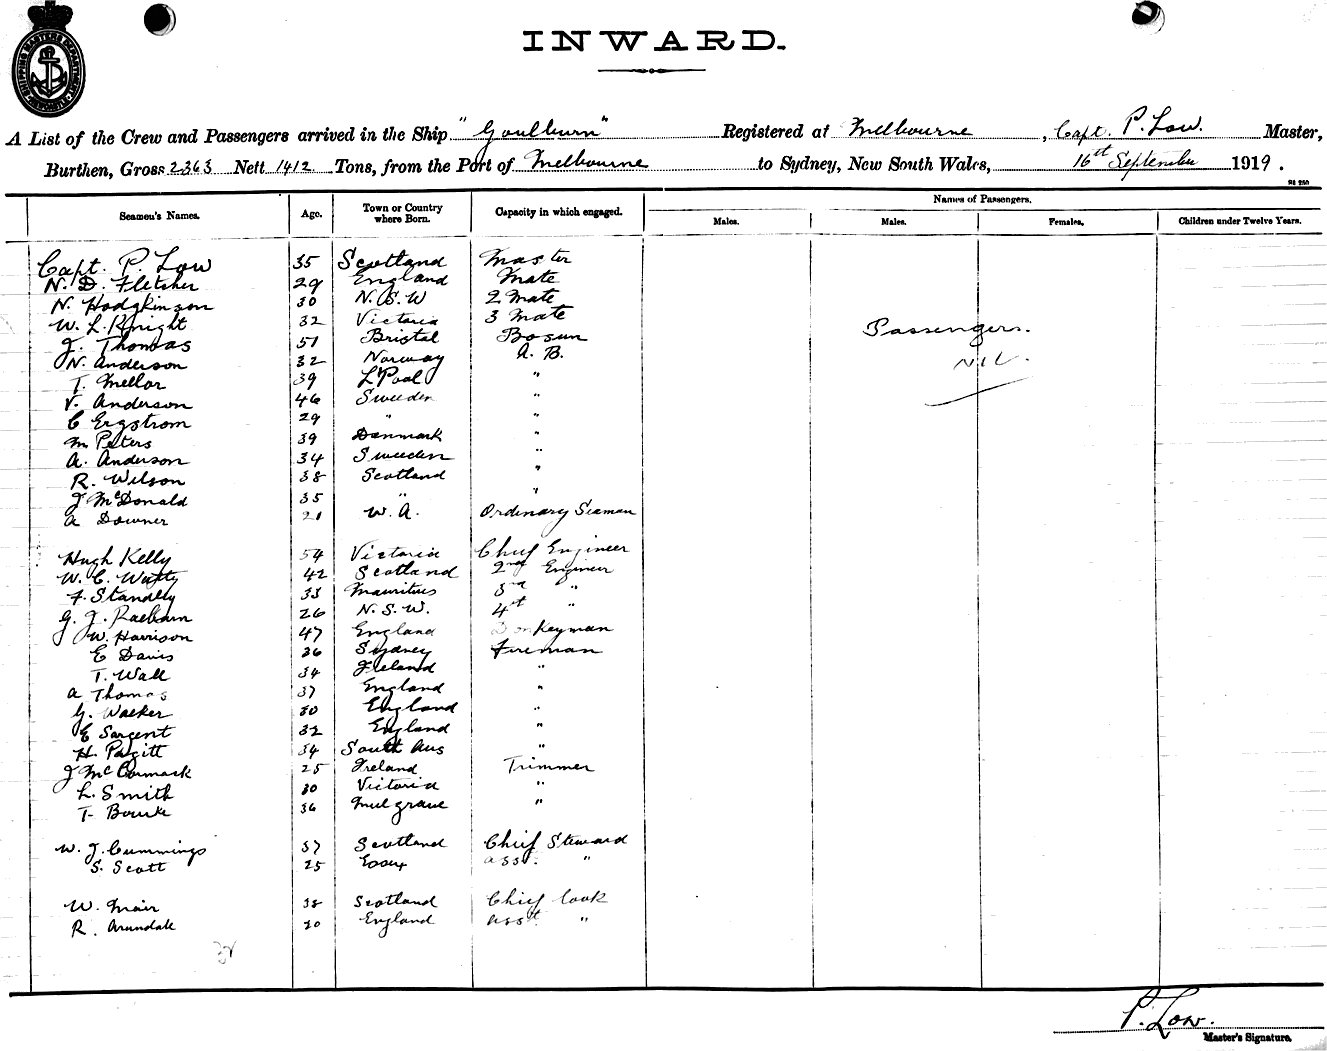 SHIPPING MASTERS DEPARTMENT NEWCASTLE
INWARD.
A List of the Crew and Passengers arrived in the Ship "Goulburn" Registered at Melbourne, Capt. P. Low. Master,
Burthen, Gross 2363 Nett 1412 Tons, from the Port of Melbourne to Sydney, New South Wales, 16th September 1919.
Names of Passengers.
Seamen's Names. Age. Town or Country where Born. Capacity in which engaged. Males. Males. Females. Children under Twelve Years.
Capt. P. Low 35 Scotland Master
N. D. Fletcher 29 England Mate
N. Hodgkinson 30 N.S.W 2 Mate
W. L. Knight 32 Victoria 3 Mate
J. Thomas 51 Bristol Bosun
N. Anderson 32 Norway A. B.
T. Mellor 39 L'Pool "
V. Anderson 46 Sweden "
C Ergstrom 29 " "
M Peters 39 Denmark "
A. Anderson 34 Sweden "
R. Wilson 38 Scotland "
J McDonald 35 " "
A Downer 21 W. A. Ordinary Seaman
Passengers.
NIL.
Hugh Kelly 54 Victoria Chief Engineer
W. C. 42 Scotland 2nd Engineer
F. Standley 33 Mauritius 3rd "
G. J. Raeburn 26 N. S. W. 4th "
W. Harrison 47 England Donkeyman
E Davis 36 Sydney Fireman
T. Wall 34 Ireland "
A Thomas 37 England "
G. Walker 30 England "
E Sargent 32 England "
H. Pagitt 34 South Aus "
J McCormack 25 Ireland Trimmer
L. Smith 30 Victoria "
T. Bourke 36 Mulgrave "
W. J. Cummings 37 Scotland Chief Steward
S. Scott 25 Essex asst. "
W. Mair 38 Scotland Chief Cook
R. Arundale 20 England asst "
32
P. Low.
Master's Signature.